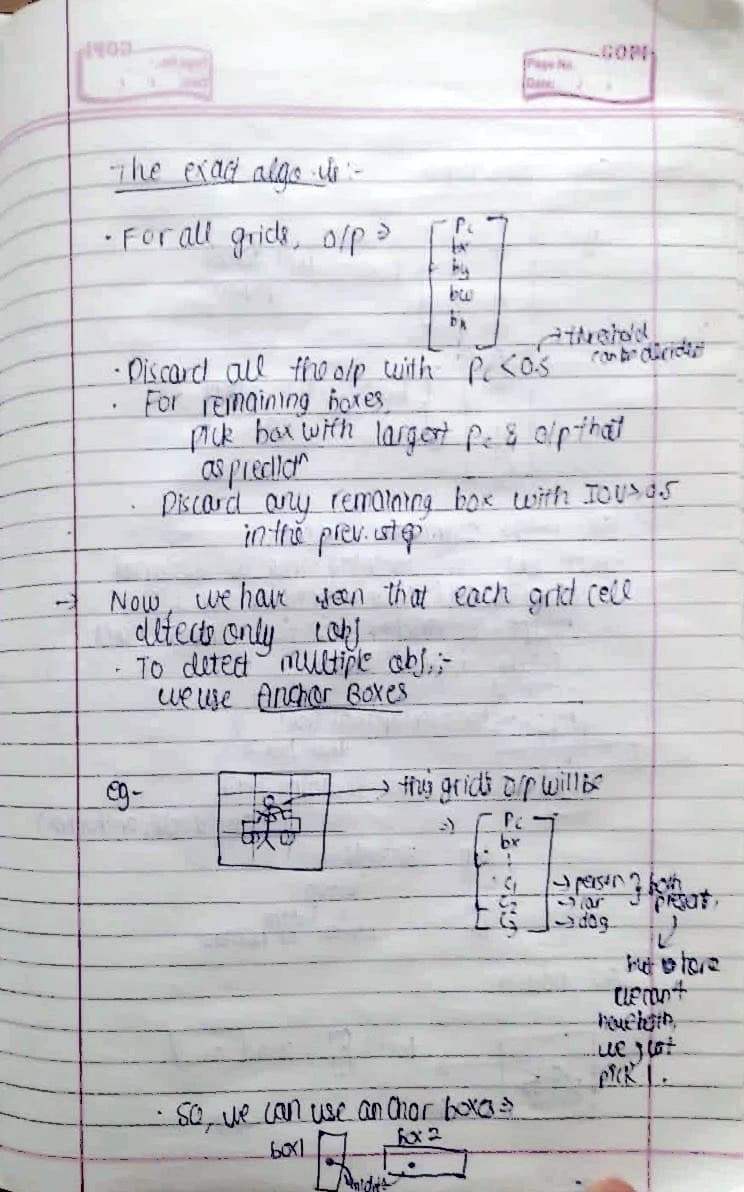 COPI
Page No.
Date:
The exact algo is :-
• For all grids, o/p ⇒ [Pc
bx
by
bw
bh]
→ threshold
can be decided
• Discard all the o/p with Pc < 0.5
• For remaining boxes
pick box with largest Pc & o/p that
as predictn
• Discard any remaining box with IOU > 0.5
in the prev. step
→ Now, we have seen that each grid cell
detects only 1 obj
• To detect multiple obj.:-
we use Anchor Boxes
eg- → this grid's o/p will be
⇒ [Pc
bx
⋮
C1 → person } both
C2 → car } present,
C3] → dog
↓
but here
we can't
have both,
we just
pick 1.
• So, we can use anchor boxes ⇒
box1 box 2
midpts